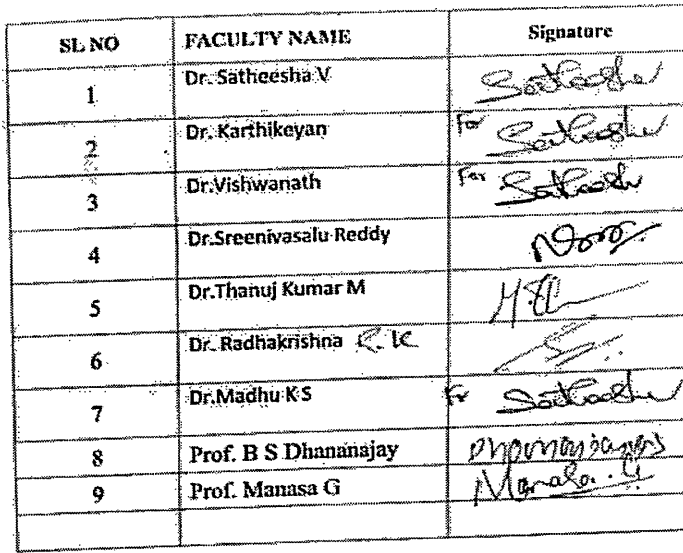 SL NO FACULTY NAME Signature
1 Dr. Satheesha V Satheesha
2 Dr. Karthikeyan For Satheesha
3 Dr.Vishwanath For Satheesha
4 Dr.Sreenivasalu Reddy
5 Dr.Thanuj Kumar M
6 Dr. Radhakrishna R.K
7 Dr.Madhu K S For Satheesha
8 Prof. B S Dhananajay
9 Prof. Manasa G Manasa. G